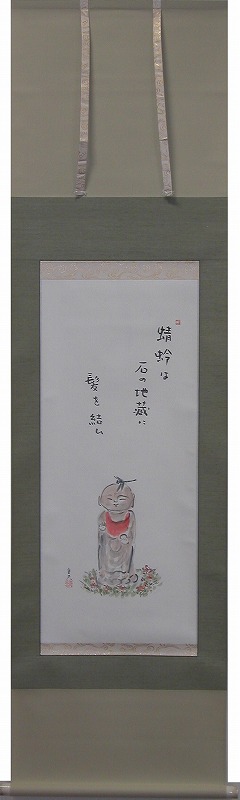 蜻蛉は
石の地蔵に
髪を結ひ